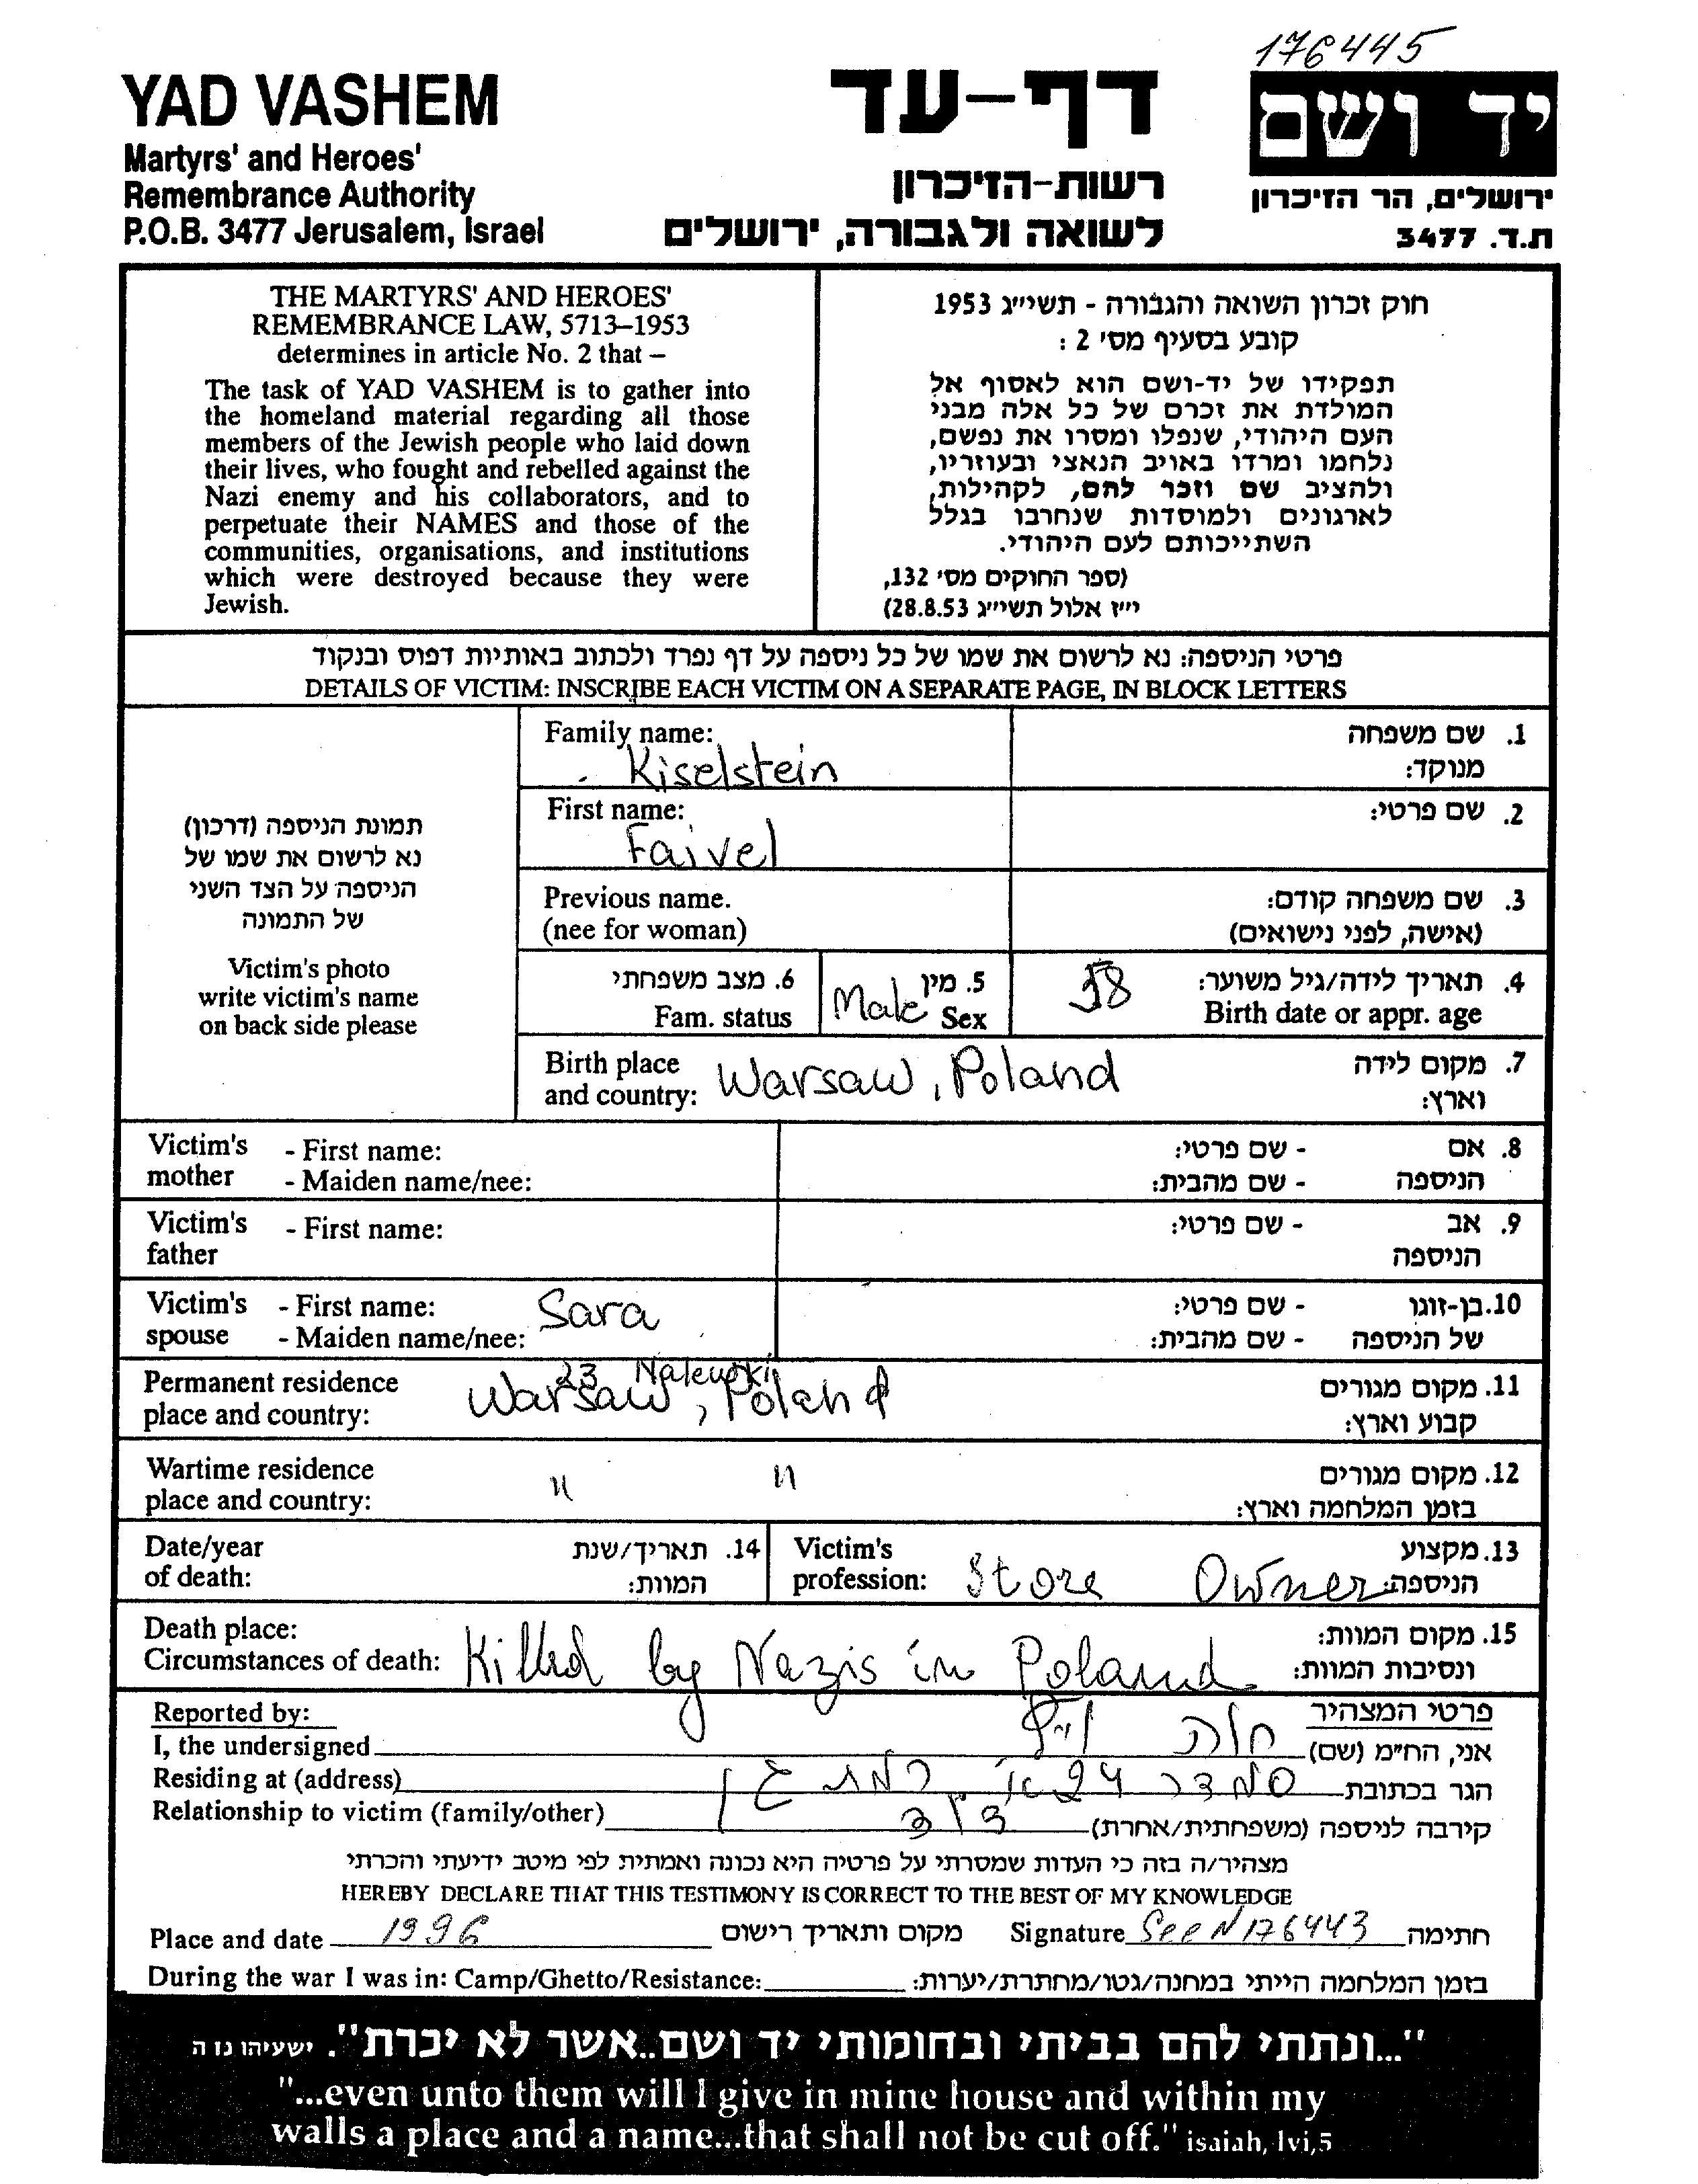 176445
YAD VASHEM
Martyrs' and Heroes'
Remembrance Authority
P.O.B. 3477 Jerusalem, Israel
דף-עד
רשות-הזיכרון
לשואה ולגבורה, ירושלים
יד ושם
ירושלים, הר הזיכרון
ת.ד. 3477
THE MARTYRS' AND HEROES'
REMEMBRANCE LAW, 5713–1953
determines in article No. 2 that –
The task of YAD VASHEM is to gather into
the homeland material regarding all those
members of the Jewish people who laid down
their lives, who fought and rebelled against the
Nazi enemy and his collaborators, and to
perpetuate their NAMES and those of the
communities, organisations, and institutions
which were destroyed because they were
Jewish.
חוק זכרון השואה והגבורה - תשי״ג 1953
קובע בסעיף מס' 2 :
תפקידו של יד-ושם הוא לאסוף אל
המולדת את זכרם של כל אלה מבני
העם היהודי, שנפלו ומסרו את נפשם,
נלחמו ומרדו באויב הנאצי ובעוזריו,
ולהציב שם וזכר להם, לקהילות,
לארגונים ולמוסדות שנחרבו בגלל
השתייכותם לעם היהודי.
(ספר החוקים מס' 132,
י״ז אלול תשי״ג 28.8.53)
פרטי הניספה: נא לרשום את שמו של כל ניספה על דף נפרד ולכתוב באותיות דפוס ובנקוד
DETAILS OF VICTIM: INSCRIBE EACH VICTIM ON A SEPARATE PAGE, IN BLOCK LETTERS
תמונת הניספה (דרכון)
נא לרשום את שמו של
הניספה על הצד השני
של התמונה
Victim's photo
write victim's name
on back side please
Family name: 1. שם משפחה
Kiselstein מנוקד:
First name: 2. שם פרטי:
Faivel
Previous name. 3. שם משפחה קודם:
(nee for woman) (אישה, לפני נישואים)
6. מצב משפחתי 5. מין 4. תאריך לידה/גיל משוער:
Fam. status Male Sex 58 Birth date or appr. age
Birth place 7. מקום לידה
and country: Warsaw, Poland וארץ:
Victim's - First name: - שם פרטי: 8. אם
mother - Maiden name/nee: - שם מהבית: הניספה
Victim's - First name: - שם פרטי: 9. אב
father הניספה
Victim's - First name: Sara - שם פרטי: 10. בן-זוגו
spouse - Maiden name/nee: - שם מהבית: של הניספה
23 Nalewki
Permanent residence 11. מקום מגורים
place and country: Warsaw, Poland קבוע וארץ:
Wartime residence 12. מקום מגורים
place and country: " " בזמן המלחמה וארץ:
Date/year 14. תאריך/שנת Victim's 13. מקצוע
of death: המוות: profession: Store Owner הניספה:
Death place: 15. מקום המוות:
Circumstances of death: Killed by Nazis in Poland ונסיבות המוות:
Reported by: פרטי המצהיר
I, the undersigned אני, הח״מ (שם) חוה
Residing at (address) הגר בכתובת סמדר רמת גן
Relationship to victim (family/other) קירבה לניספה (משפחתית/אחרת)
מצהיר/ה בזה כי העדות שמסרתי על פרטיה היא נכונה ואמתית לפי מיטב ידיעתי והכרתי
HEREBY DECLARE THAT THIS TESTIMONY IS CORRECT TO THE BEST OF MY KNOWLEDGE
Place and date 1996 מקום ותאריך רישום Signature See N 176443 חתימה
During the war I was in: Camp/Ghetto/Resistance: בזמן המלחמה הייתי במחנה/גטו/מחתרת/יערות:
"...ונתתי להם בביתי ובחומותי יד ושם..אשר לא יכרת". ישעיהו נז ה
"...even unto them will I give in mine house and within my
walls a place and a name...that shall not be cut off." isaiah, lvi,5